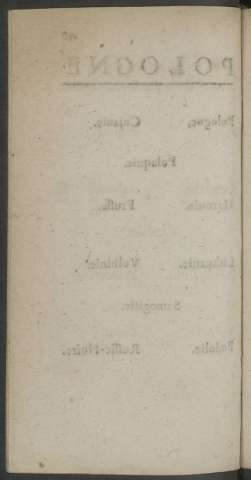 POLOGNE
Pologne. Cujavie.
Polaquie.
Prusse.
Lithuanie. Volhinie.
Samogitie.
Podolie. Russie-Noire.